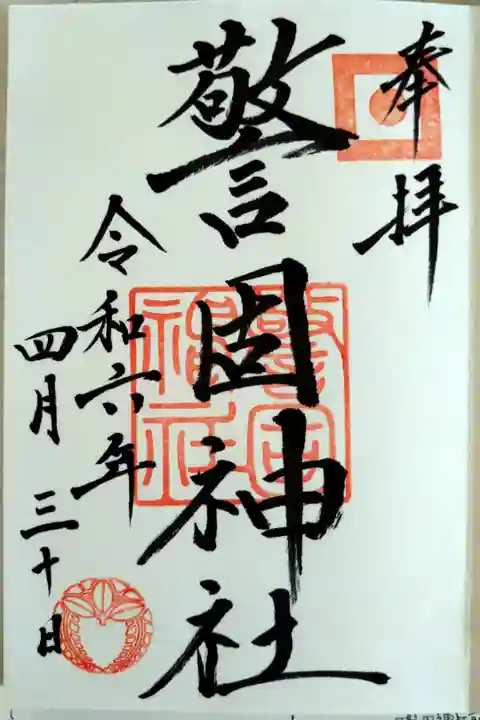 奉拝
警固神社
令和六年
四月三十日
警固神社